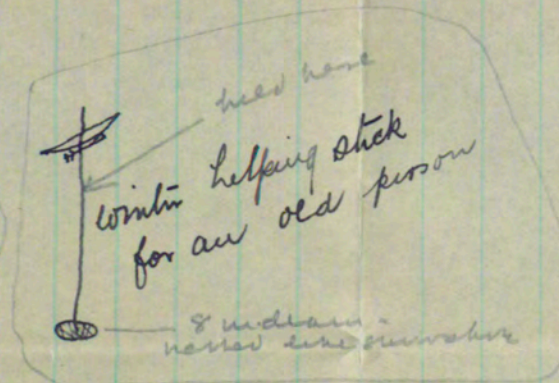 held here
winter helping stick
for an old person
8 in. diam.
netted like snowshoe